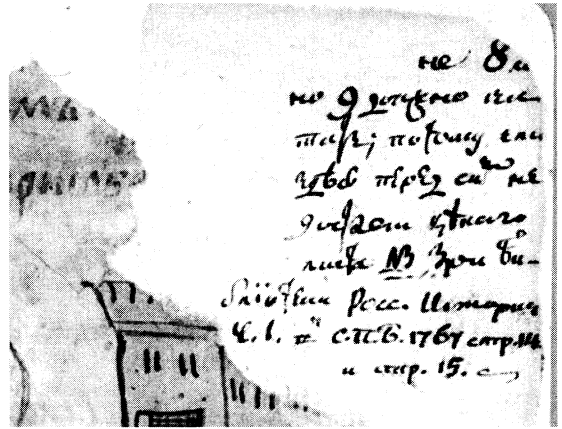 не 8
но 9 должно чи-
тать; потому что
здѣсь пред сим не
достает цѣлаго
листа NB Зри Би-
блїотеки Росс. Истории
Ч. I. С.П.Б. 1767 стр. 14
и стр. 15.